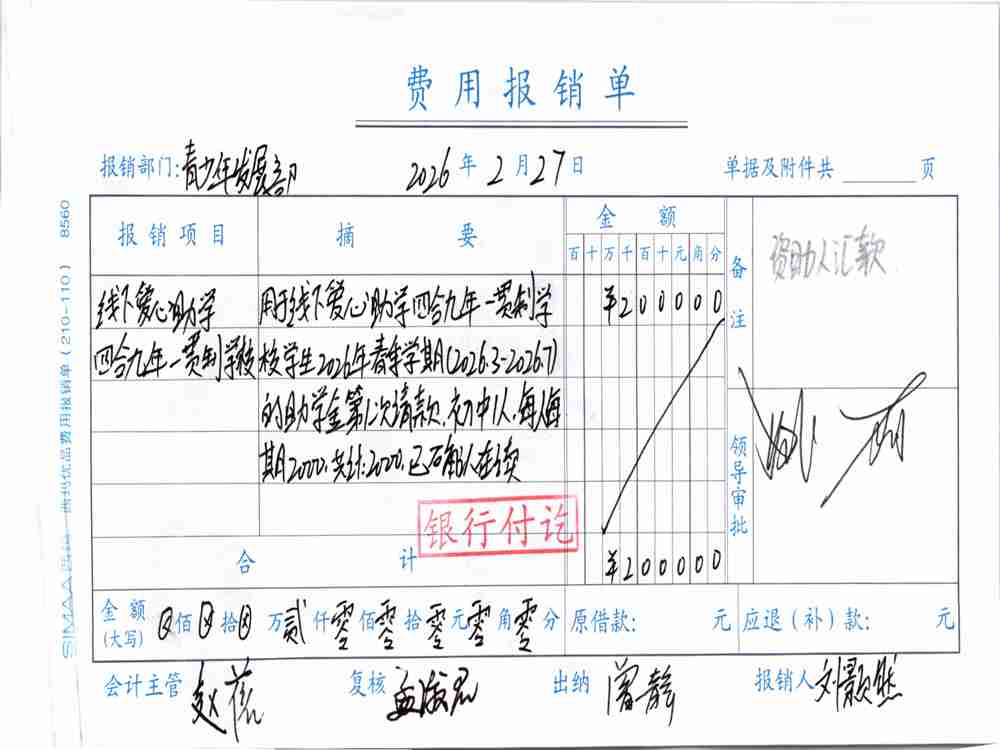 费用报销单
报销部门:青少年发展部 2026年2月27日 单据及附件共 页
报销项目 摘要 金额 备注
百十万千百十元角分
资助人汇款
线下爱心助学 用于线下爱心助学四合九年一贯制学 ¥200000
四合九年一贯制学校 校学生2026年春季学期(2026.3-2026.7)
的助学金第1次请款,初中1人,每人每
期2000,共计:2000,已确认在读
领导审批
银行付讫
合计 ¥200000
金额(大写) ⊗佰⊗拾⊗万贰仟零佰零拾零元零角零分 原借款: 元 应退(补)款: 元
会计主管 赵蓓 复核 出纳 曾静 报销人 刘颢然
SIMAA 西玛优品费用报销单(210-110) 8560